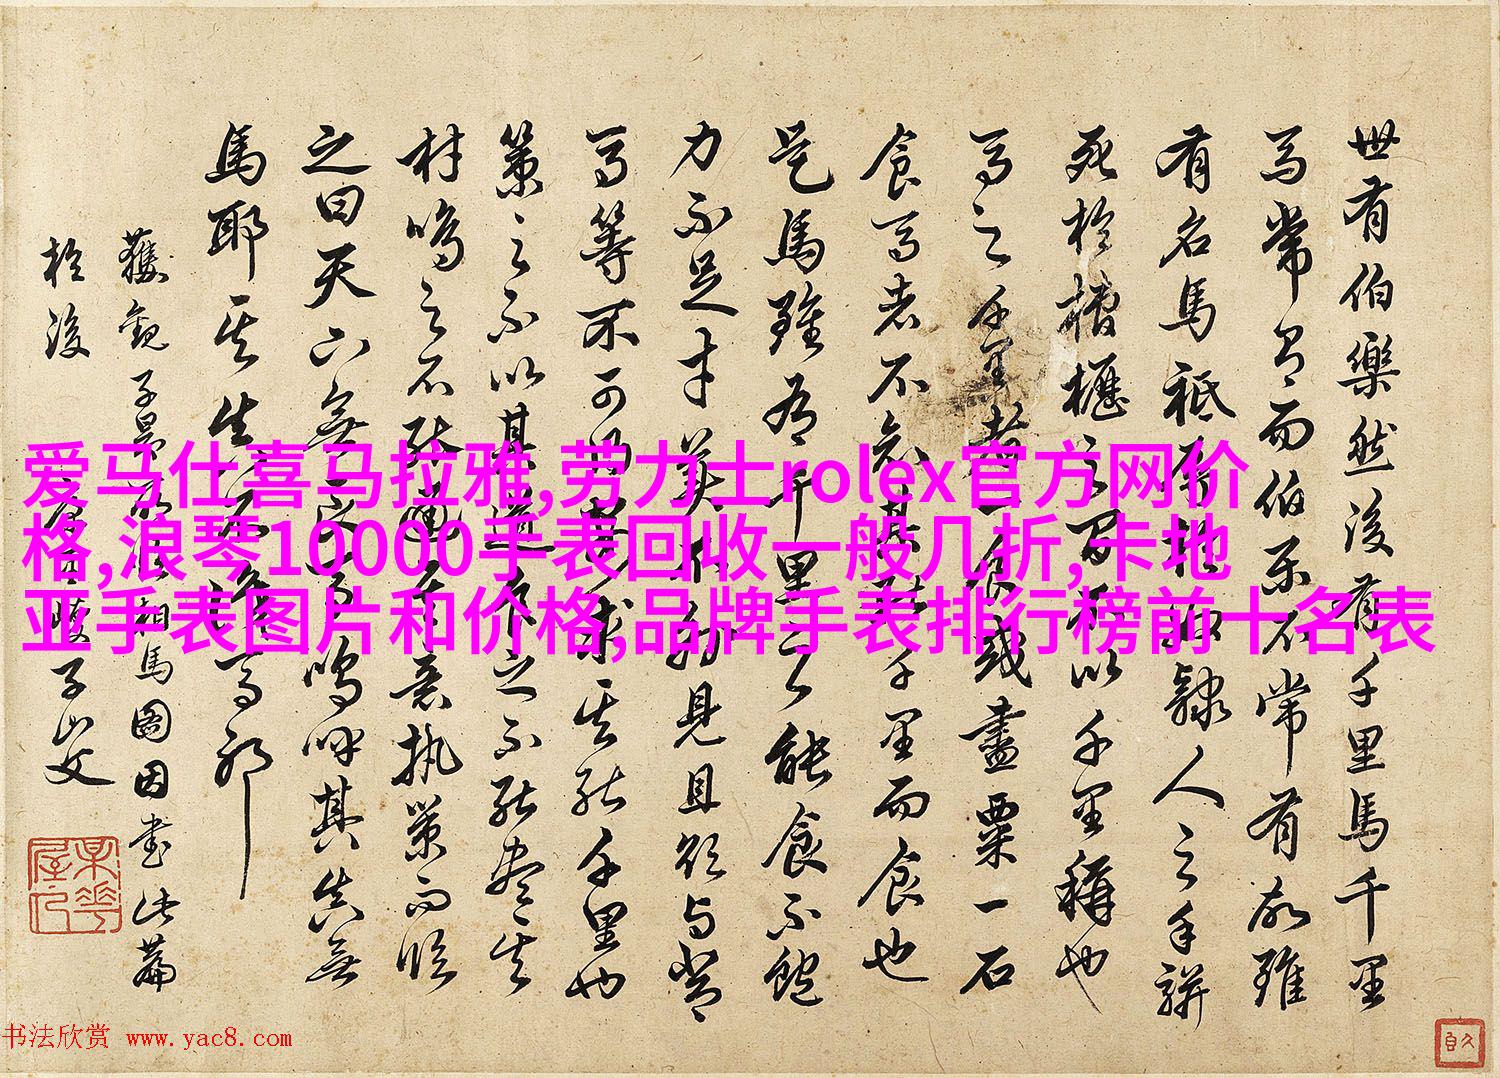 世有伯樂然後有千里馬千里
馬常有而伯樂不常有故雖
有名馬祗辱於奴隸人之手駢
死於槽櫪之間不以千里稱也
馬之千里者一食或盡粟一石
食馬者不知其能千里而食也
是馬雖有千里之能食不飽
力不足才美不外見且欲与常
馬等不可得安求其能千里也
策之不以其道食之不能盡其
材鳴之不能通其意執策而臨
之曰天下無良馬嗚呼其真無
馬耶其真不識馬耶
獲觀子昂 相馬圖因書此篇
於後 子山父
爱马仕喜马拉雅,劳力士rolex官方网价
格,浪琴10000手表回收一般几折,卡地
亚手表图片和价格,品牌手表排行榜前十名表
书法欣赏 www.yac8.com